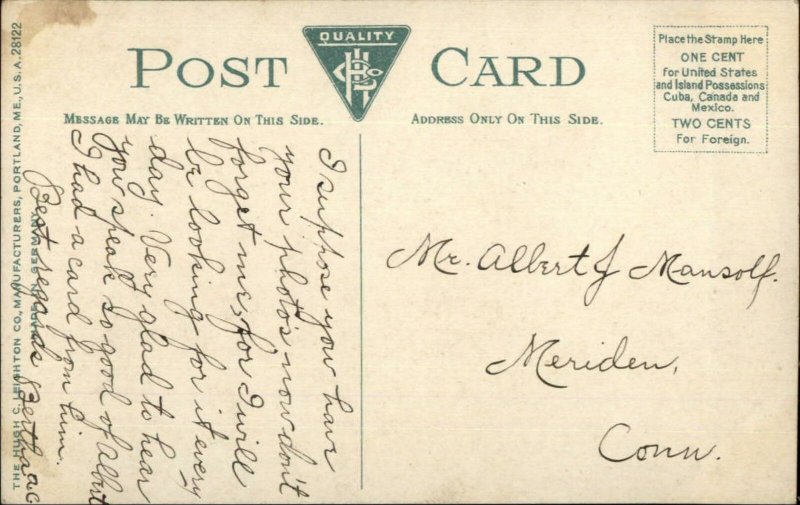 QUALITY
POST CARD
MESSAGE MAY BE WRITTEN ON THIS SIDE.
ADDRESS ONLY ON THIS SIDE.
Place the Stamp Here
ONE CENT
for United States
and Island Possessions
Cuba, Canada and
Mexico.
TWO CENTS
For Foreign.
I suppose you have
your photos now don't
forget me, for I will
be looking for it every
day. Very glad to hear
you speak so good of Albert
I had a card from him.
Best regards Bertha C
Mr. Albert J Mansolf.
Meriden,
Conn.
THE HUGH C. LEIGHTON CO., MANUFACTURERS, PORTLAND, ME., U.S.A. 28122
MADE IN GERMANY